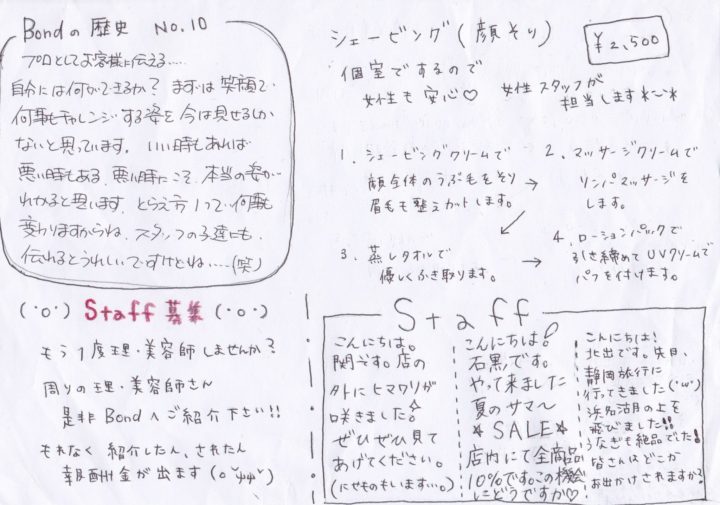 Bondの歴史 No.10
プロとしてお客様に伝える……
自分には何ができるか？まずは笑顔で、
何事もチャレンジする姿を今は見せるしか
ないと思っています。いい時もあれば
悪い時もある、悪い時にこそ、本当の姿が
わかると思います、とらえ方1つで何事も
変わりますからね、スタッフの子達にも、
伝わるとうれしいですけどね……(笑)
シェービング(顔そり)
¥2,500
個室でするので
女性も安心♡
女性スタッフが
担当します*~*
1. シェービングクリームで
顔全体のうぶ毛をそり
眉毛も整えカットします。
→
2. マッサージクリームで
リンパマッサージを
します。
3. 蒸しタオルで
優しくふき取ります。
→
4. ローションパックで
引き締めてUVクリームで
パフを付けます。
(・o・) Staff募集 (・o・)
もう1度理・美容師しませんか？
周りの理・美容師さん
是非Bondへご紹介下さい!!
もれなく紹介した人、された人
報酬金が出ます
Staff
こんにちは。
関です。店の
外にヒマワリが
咲きました!
ぜひぜひ見て
あげてください。
(にせものもいます…。)
こんにちは!
石黒です。
やって来ました
夏のサマ〜
*SALE*
店内にて全商品
10%です。この機会
にどうですか♡
こんにちは!
北出です。先日、
静岡旅行に
行ってきました('ω')
浜名湖の上を
飛びました!!
うなぎも絶品でした!
皆さんはどこか
お出かけされますか?